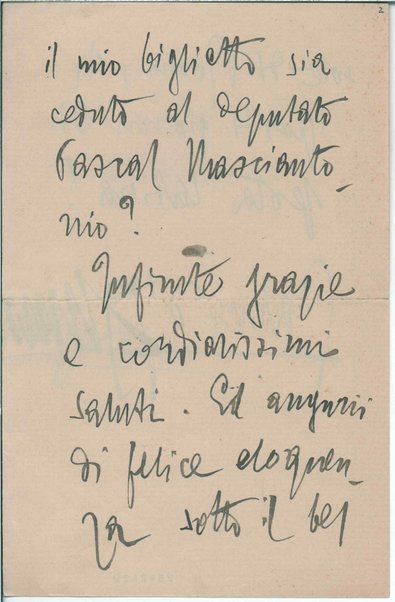 2
il mio biglietto sia
ceduto al deputato
Pascal Mascianto-
nio?
Infinite grazie
e cordialissimi
saluti. Ed augurii
di felice eloquen-
za sotto il bel